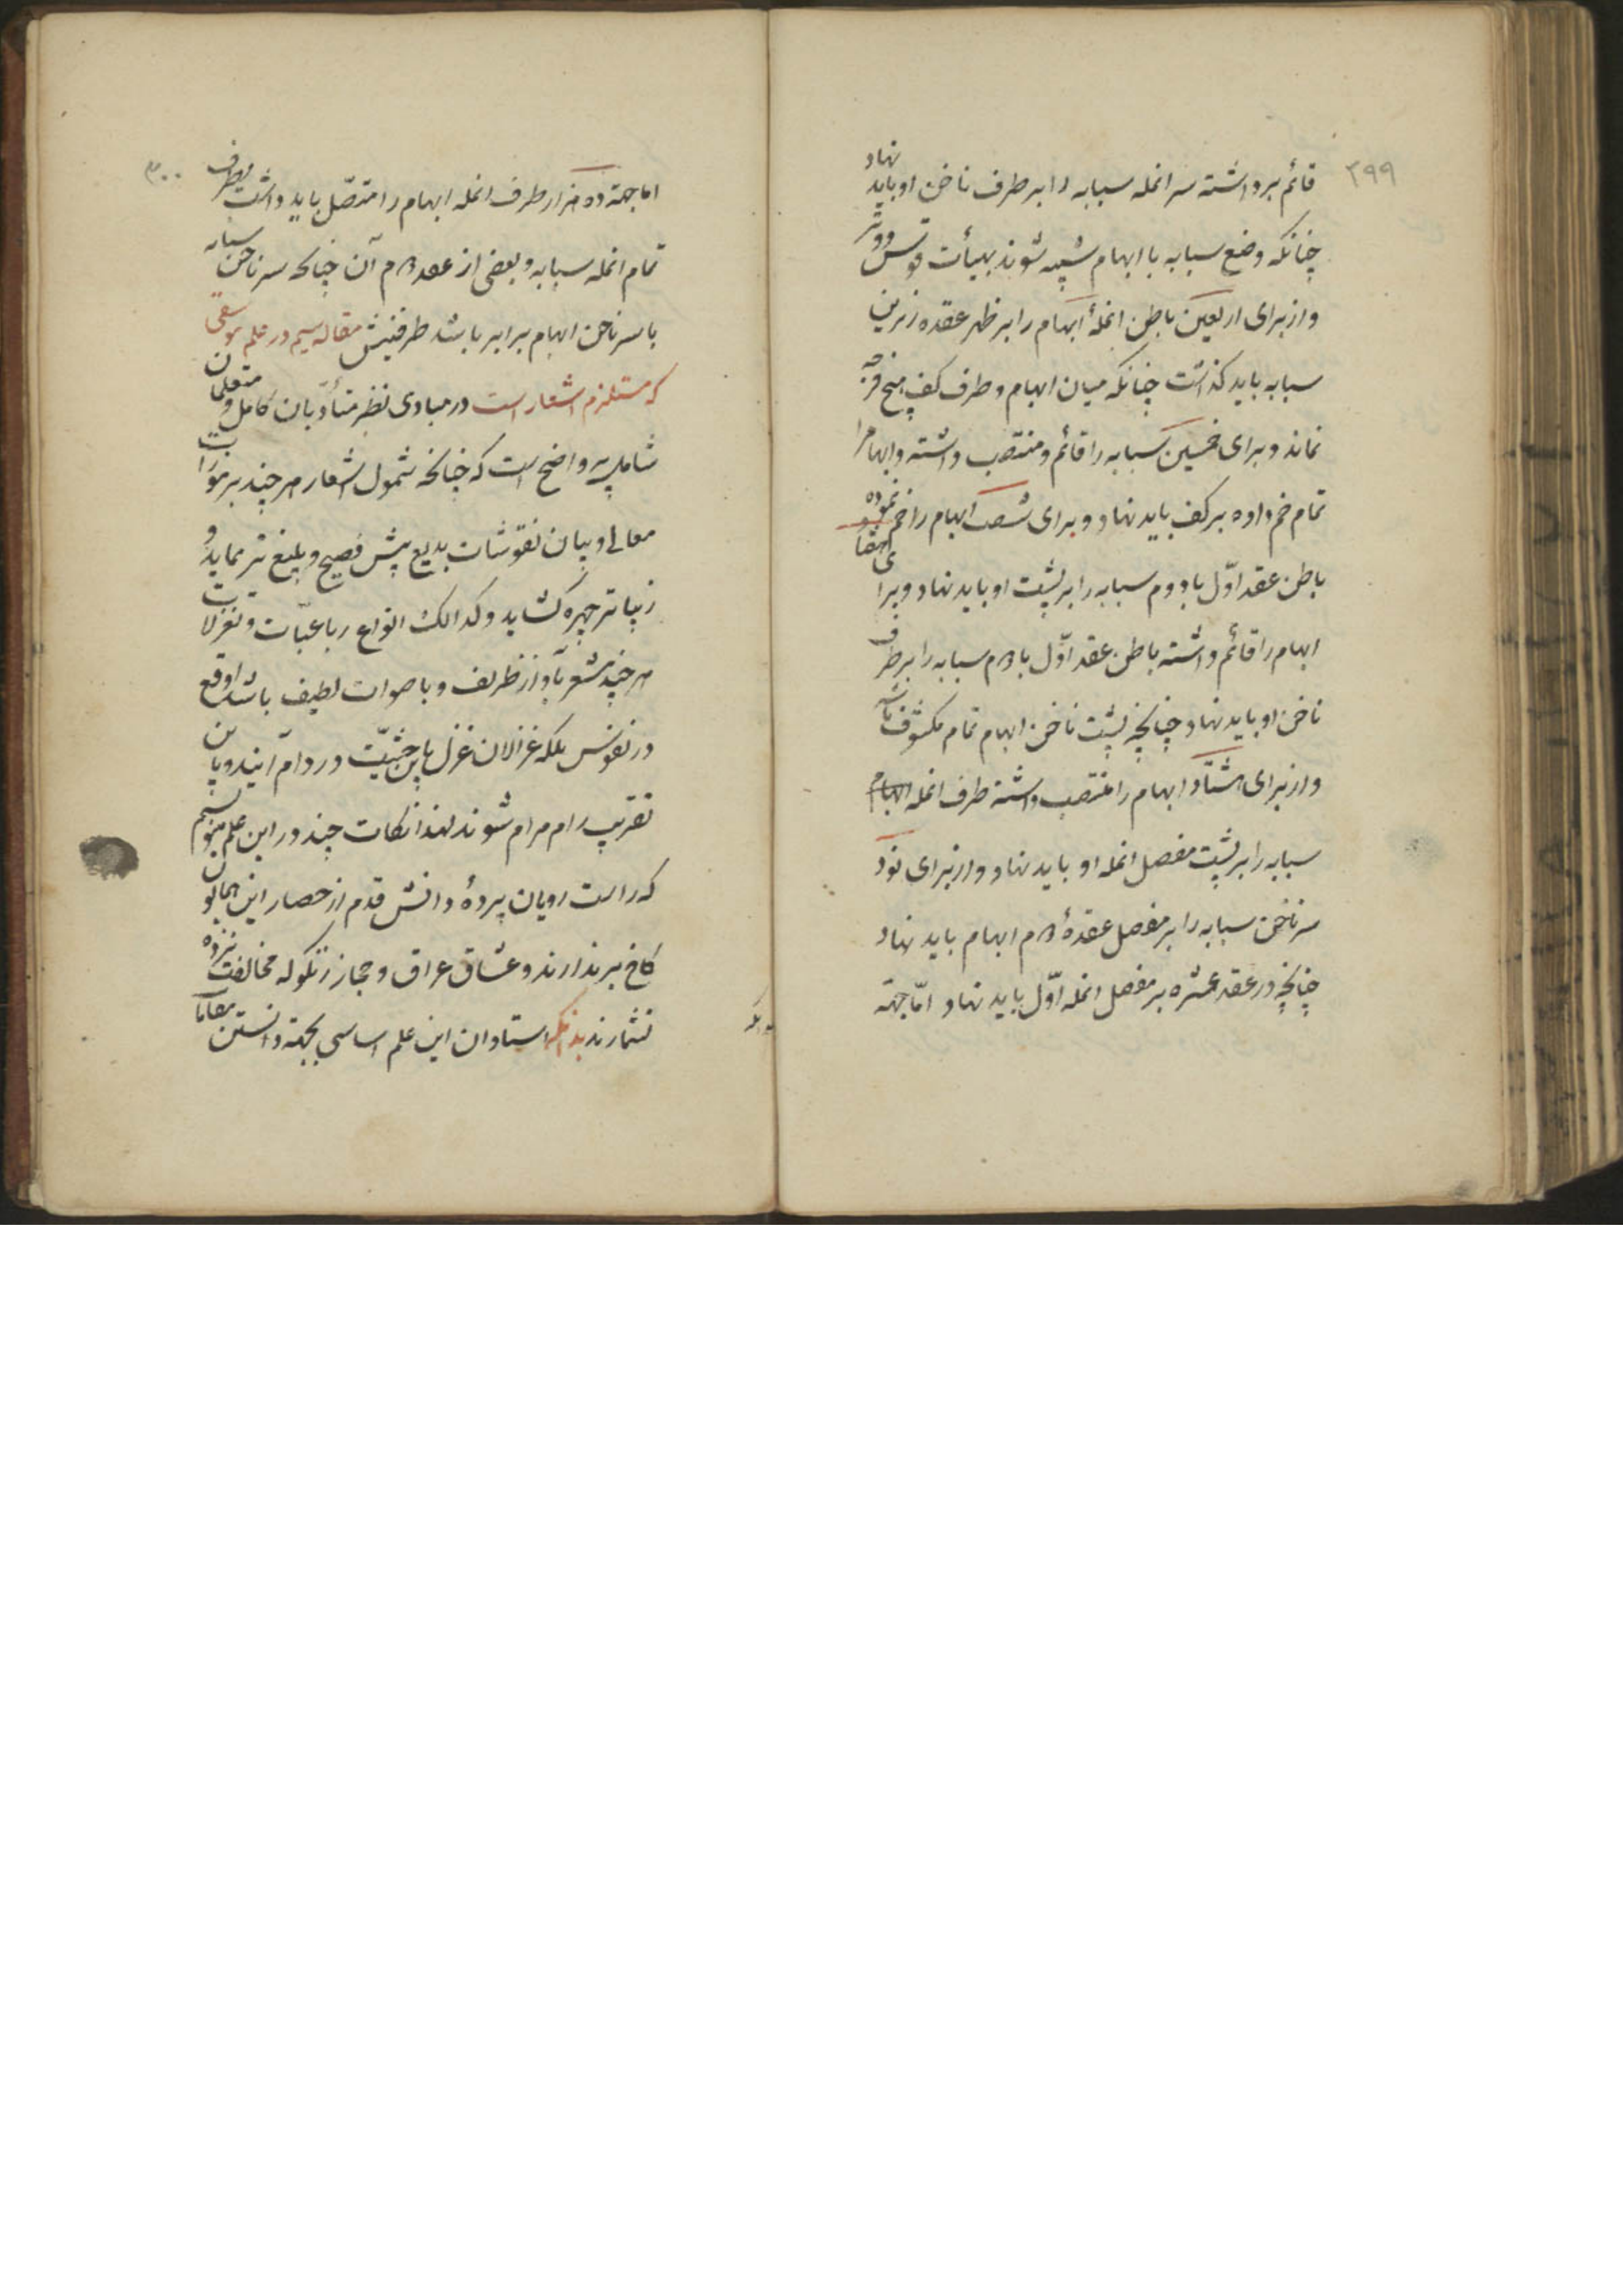 ۲۹۹
قائم برداشته سر انمله سبابه را بر طرف ناخن او باید نهاد
چنانکه وضع سبابه با ابهام شبیه شوند بهیأت قوس و وتر
و از برای اربعین باطن انملهٔ ابهام را بر ظهر عقده زیرین
سبابه باید گذاشت چنانکه میان ابهام و طرف کف هیچ فرجه
نماند و برای خمسین سبابه را قائم و منتصب داشته و ابهام را
تمام خم داده بر کف باید نهاد و برای شصت ابهام را خم نموده
باطن عقد اوّل یا دوم سبابه را بر پشت او باید نهاد و برای هفتاد
ابهام را قائم داشته باطن عقد اوّل یا دوم سبابه را بر طرف
ناخن او باید نهاد چنانچه پشت ناخن ابهام تمام مکشوف باشد
و از برای هشتاد ابهام را منتصب داشته طرف انمله
سبابه را بر پشت مفصل انمله او باید نهاد و از برای نود
سر ناخن سبابه را بر مفصل عقدهٔ دوم ابهام باید نهاد
چنانچه در عقد عشره بر مفصل انمله اوّل باید نهاد امّا جهته
۳۰۰
اما جهته ده هزار طرف انمله ابهام را متصّل باید داشت بطرف
تمام انمله سبابه و بعضی از عقد دوم آن چنانکه سر ناخن سبابه
با سر ناخن ابهام برابر باشد طرفینش مقاله سیم در علم موسقی
که مستلزم اشعار است در مبادی نظر متأدّبان کامل و متعلمان
شامل واضح است که چنانچه شمول اشعار هر چند بر
معانی و بیان نقوشات بدیع پیش فصیح و بلیغ تر نماید و
زیباتر چهره گشاید و کذالک انواع رباعیّات و تغزلات
هر چند مشعر بآواز ظریف و باصوات لطیف باشد اوقع
در نفوس بلکه غزالان غزل باین حیثیّت در دام آیند و باین
تقریب رام مرام شوند لهذا نکات چند در این علم
که راست رویان پردهٔ دانش قدم از حصار این همایون
کاخ بر ندارند و عشاق عراق و حجاز زنگوله مخالفت
نشمارند بدانکه استادان این علم اساسی بجهته دانستن مقامات